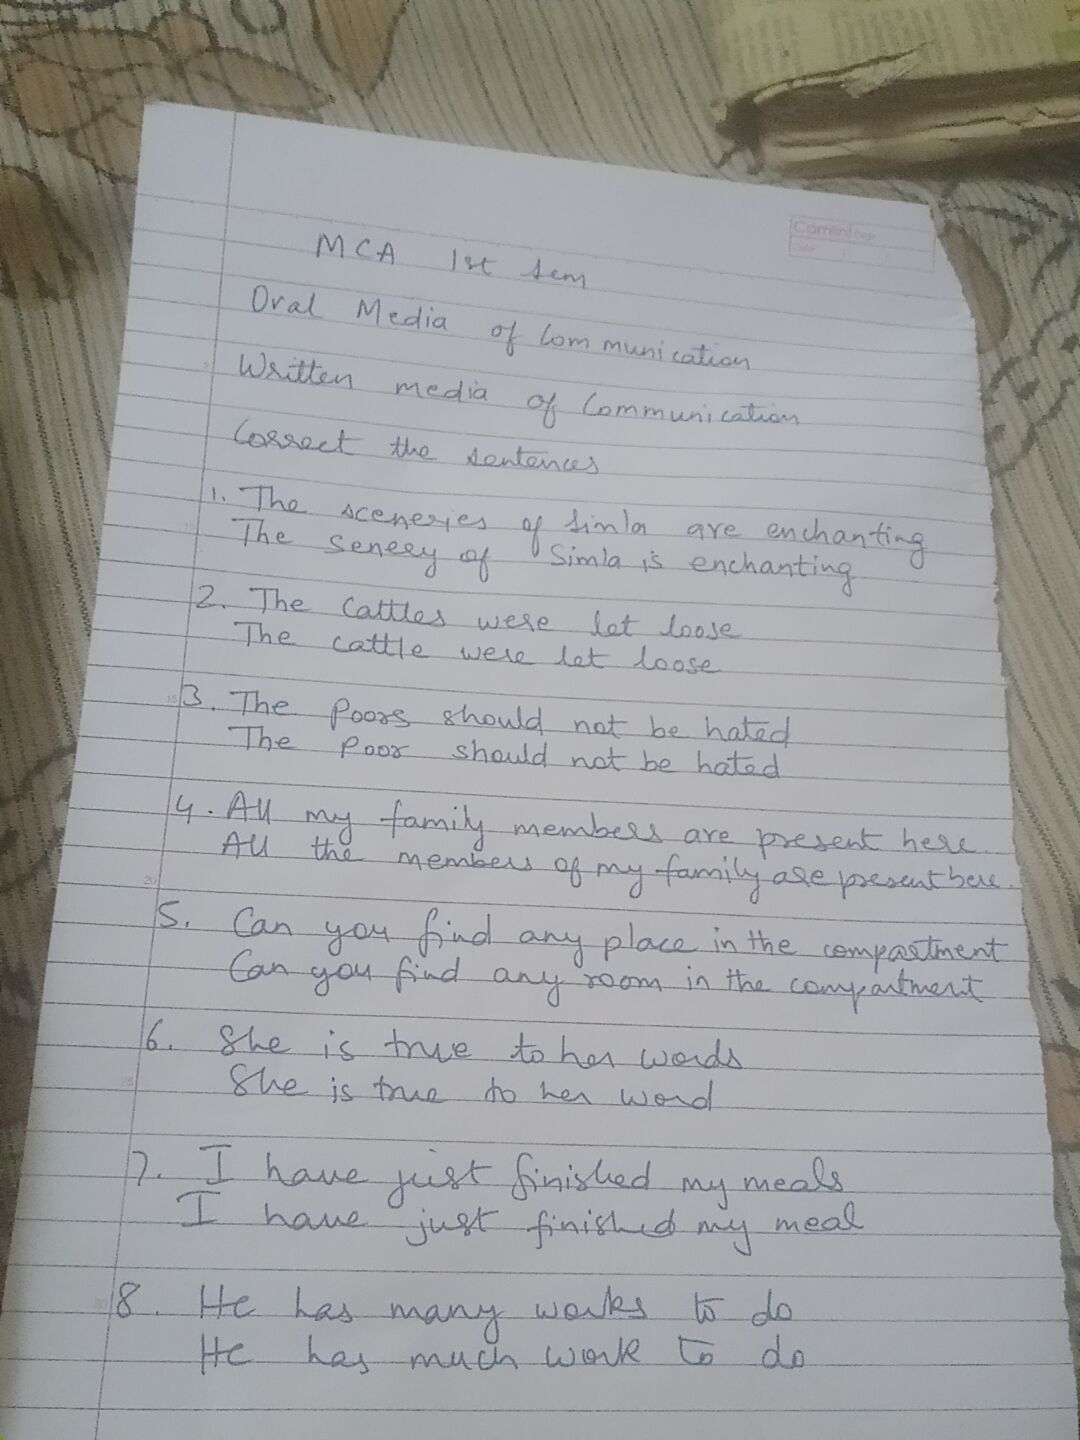 MCA 1st Sem
Oral Media of Communication
Written media of Communication
Correct the sentences
1. The sceneries of Simla are enchanting
The senery of Simla is enchanting
2. The Cattles were let loose
The cattle were let loose
3. The Poors should not be hated
The Poor should not be hated
4. All my family members are present here
All the members of my family are present here.
5. Can you find any place in the compartment
Can you find any room in the compartment
6. She is true to her words
She is true to her word
7. I have just finished my meals
I have just finished my meal
8. He has many works to do
He has much work to do
Camlin Page
Date